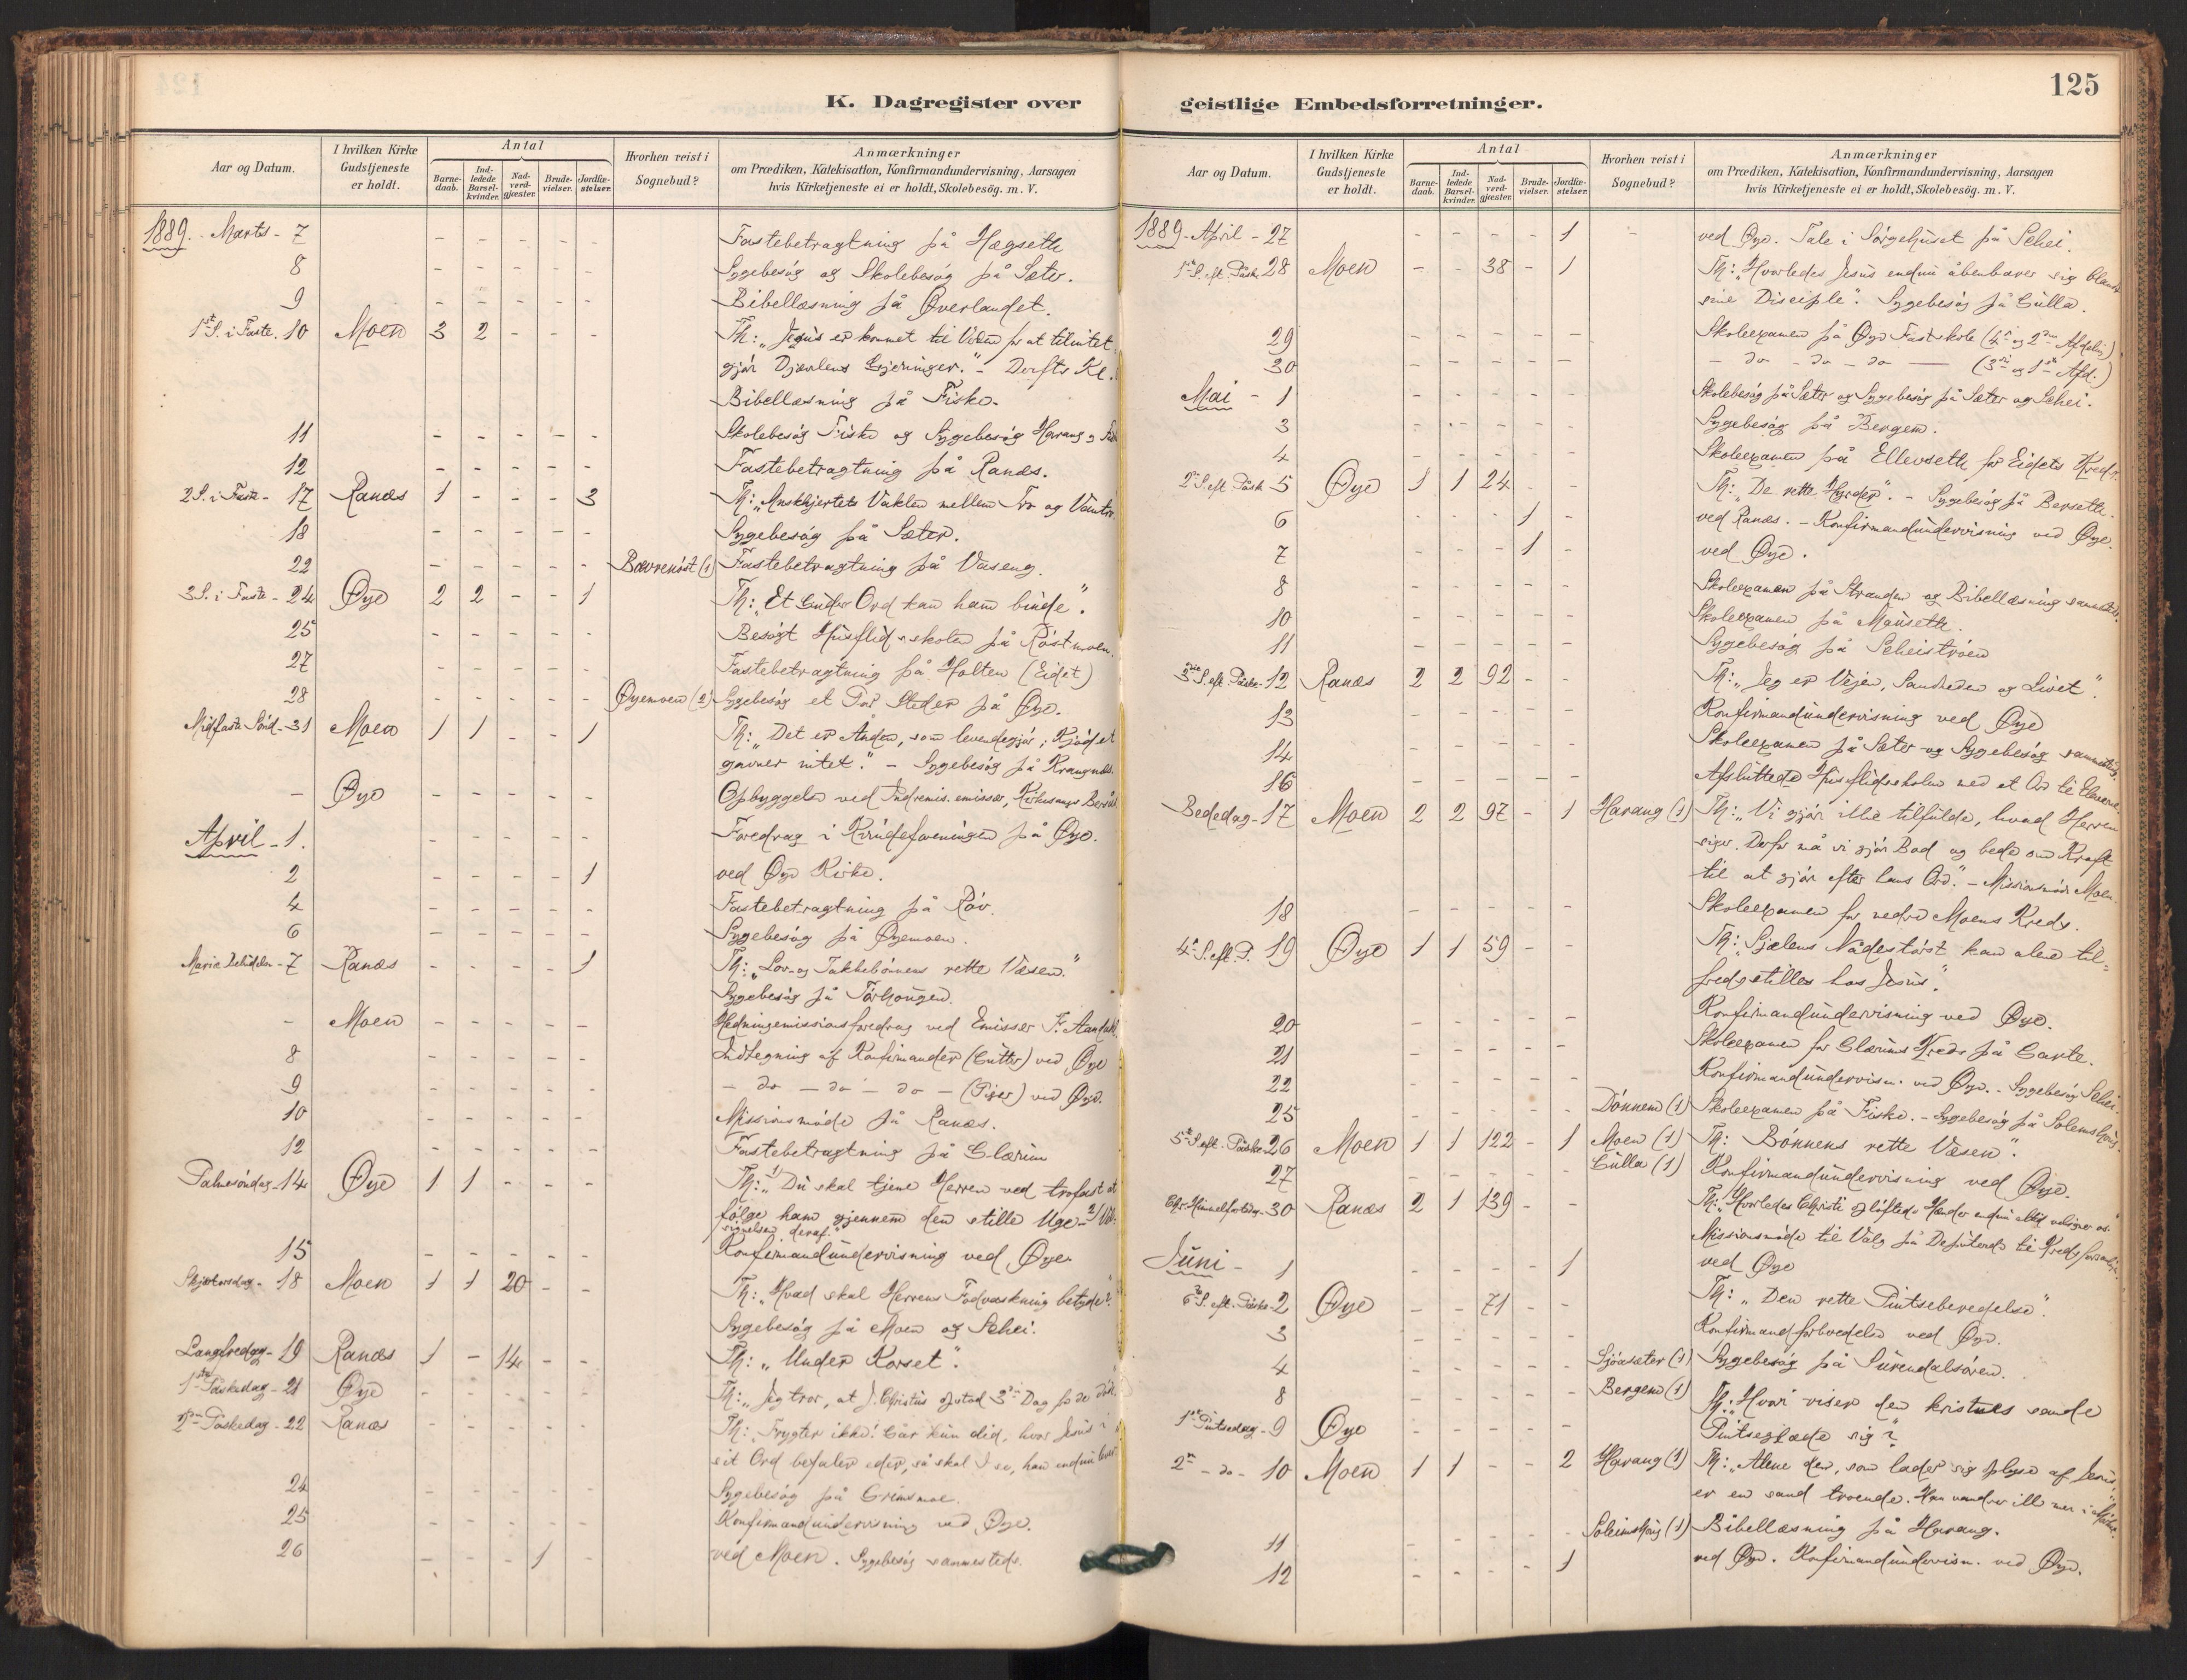 K. Dagregister over
Aar og Datum.
I hvilken Kirke Gudstjeneste er holdt.
Antal
Barnedaab.
Indledede Barselkvinder.
Nadverdgjæster.
Brudevielser.
Jordfæstelser.
Hvorhen reist i Sognebud?
Anmærkninger
om Prædiken, Katekisation, Konfirmandundervisning, Aarsagen
hvis Kirketjeneste ei er holdt, Skolebesög. m. V.
1889. - Marts - 7 - - - - - Fastebetragtning på Hægseth
8 - - - - - Sygebesög og Skolebesög på Sæter.
9 - - - - - Bibellæsning på Øverlandet.
1ste S. i Faste. 10 Moen 3 2 - - - Th: "Jesus er kommet til Verden for at tilintet
gjör Djævlens Gjerninger." - Derefter Kl.
Bibellæsning på Fiske.
11 - - - - - Skolebesög Fiske og Sygebesög Harang
12 - - - - - Fastebetragtning på Ranæs.
2 S. i Faste - 17 Ranæs 1 - - - 3 Th: "Menskhjertets Vaklen mellem Tro og Vantro
18 - - - - - Sygebesög på Sæter.
22 - - - - - Bævrenöst (1) Fastebetragtning på Vaseng.
3 S. i Faste - 24 Øye 2 2 - - 1 Th: "Et Guds Ord kan ham binde".
25 - - - - - Besögt Husflidsskolen på Röstmoen.
27 - - - - - Fastebetragtning på Holten (Eidet)
28 - - - - - Øyemoen (2) Sygebesög et Par Steder på Øye.
Midfaste Sönd - 31 Moen 1 1 - - 1 Th: "Det er Ånden, som levendegjör; Kjödet
gavner intet." - Sygebesög på Krangnæs.
- Øye - - - - - Opbyggelse ved Indremis. emissær, Kirkesanger
April - 1. - - - - - Foredrag i Kvindeforeningen på Øye.
2 - - - - 1 ved Øye Kirke.
4 - - - - - Fastebetragtning på Röv.
6 - - - - - Sygebesög på Øyemoen.
Mariæ Bebudelse - 7 Ranæs - - - - 1 Th: "Lov- og Takkebönnens rette Væsen."
Sygebesög på Törhougen.
- Moen - - - - - Hedningemissionsforedrag ved Emissær
8 - - - - - Indtegning af Konfirmander (Gutter) ved Øye
9 - - - - - - do - do - do - (Piger) ved Øye.
10 - - - - - Missionsmöde på Ranæs.
12 - - - - - Fastebetragtning på Glærum
Palmesöndag - 14 Øye 1 1 - - - Th: "1/ Du skal tjene Herren ved trofast at
fölge ham gjennem den stille Uge - 2/ Vel-
signelsen deraf."
15 - - - - - Konfirmandundervisning ved Øye.
Skjærtorsdag - 18 Moen 1 1 20 - - Th: "Hvad skal Herrens Fodvaskning betyde?"
Sygebesög på Moen og Schei.
Langfredag - 19 Ranæs 1 - 14 - - Th: "Under Korset".
1ste Påskedag - 21 Øye - - - - - Th: "Jeg tror, at J. Christus opstod 3die Dag fra de döde."
2den Påskedag - 22 Ranæs - - - - - Th: "Frygter ikke! Går kun did, hvor Jesus i
sit Ord befaler eder, så skal I se, han endnu lever.
24 - - - - - Sygebesög på Grimsmoe.
25 - - - - - Konfirmandundervisning ved Øye.
26 - - - 1 - ved Moen. Sygebesög sammesteds.
geistlige Embedsforretninger.
125
Aar og Datum.
I hvilken Kirke Gudstjeneste er holdt.
Antal
Barnedaab.
Indledede Barselkvinder.
Nadverdgjæster.
Brudevielser.
Jordfæstelser.
Hvorhen reist i Sognebud?
Anmærkninger
om Prædiken, Katekisation, Konfirmandundervisning, Aarsagen
hvis Kirketjeneste ei er holdt, Skolebesög. m. V.
1889 - April - 27 - - - - 1 - ved Øye. Tale i Sörgehuset på Schei.
1ste S. eft. Påske 28 Moen - - 38 - 1 Th: "Hvorledes Jesus endnu åbenbarer sig blandt
sine Disciple". Sygebesög på Gulla.
29 - - - - - Skoleexamen på Øye Fastskole (4de og 2den Afdeling)
30 - - - - - - do - do - do - (3die og 1ste Afd.)
Mai - 1 - - - - - Skolebesög på Sæter og Sygebesög på Sæter og Schei.
3 - - - - - Sygebesög på Bergem.
4 - - - - - Skoleexamen på Ellevseth for Eidets Kreds.
2den S. eft. Påsk 5 Øye 1 1 24 - - Th: "De rette Hyrder". - Sygebesög på Berseth.
6 - - - 1 - ved Ranæs. - Konfirmandundervisning ved Øye.
7 - - - 1 - ved Øye.
8 - - - - - Skoleexamen på Stranden og Bibellæsning sammesteds.
10 - - - - - Skoleexamen på Mauseth.
11 - - - - - Sygebesög på Scheiströen
3die S. eft. Påske - 12 Ranæs 2 2 92 - - Th: "Jeg er Vejen, Sandheden og Livet".
13 - - - - - Konfirmandundervisning ved Øye
14 - - - - - Skoleexamen på Sæter og Sygebesög sammesteds.
16 - - - - - Afsluttede Husflidsskolen med et Ord til Eleverne.
Bededag - 17 Moen 2 2 97 - 1 Harang (1) Th: "Vi gjör ikke tilfulde, hvad Herren
siger. Derfor må vi gjör Bod og bede om Kraft
til at gjör efter hans Ord." - Missionsmöde Moen.
18 - - - - - Skoleexamen for nedre Moens Kreds.
4de S. eft. P. 19 Øye 1 1 59 - - Th: "Sjælens Nådestörst kan alene til=
fredsstilles hos Jesus".
20 - - - - - Konfirmandundervisning ved Øye.
21 - - - - - Skoleexamen for Glærums Kreds på Garte.
22 - - - - - Konfirmandundervisn. ved Øye. - Sygebesög Schei.
25 - - - - - Dönnem (1) Skoleexamen på Fiske. - Sygebesög på Solemshöug.
5te S. eft. Påske 26 Moen 1 1 122 - 1 Moen (1) Th: Bönnens rette Væsen".
27 - - - - - Gulla (1) Konfirmandundervisning ved Øye.
Chr. Himmelfartsdag - 30 Ranæs 2 1 139 - - Th: "Hvorledes Christi opløftede Hænder endnu altid velsigner os."
Missionsmöde til Valg på Deputerede til Kredsforsamlingen.
Juni - 1 - - - - 1 ved Øye
6te S. eft. Påske - 2 Øye - - 71 - - Th: "Den rette Pintseberegelse".
3 - - - - - Konfirmandforberedelse ved Øye.
4 - - - - - Sjöasæter (1) Sygebesög på Surendalsören.
8 - - - - - Bergem (1)
1ste Pintsedag - 9 Øye - - - - - Th: "Hvori viser den kristnes sande
Pintseglæde sig?
2den - do - 10 Moen 1 1 - - 2 Harang (1) Th: "Alene den, som lader sig oplyse af Jesus,
er en sand troende. Han vandrer ikke mer i Mörket.
11 - - - - - Soleimshöug (1) Bibellæsning på Harang.
12 - - - - 1 ved Øye. Konfirmandundervisn. ved Øye.